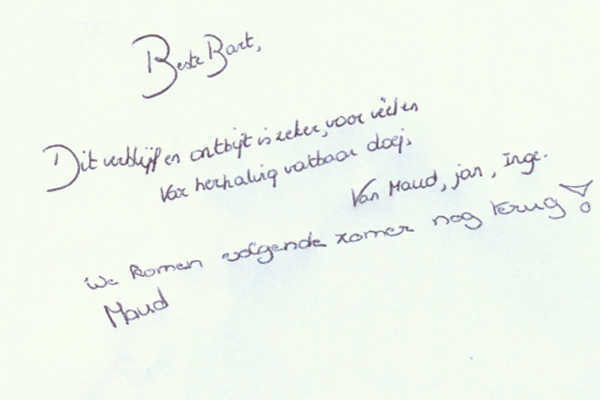 Beste Bart,
Dit verblijf en ontbijt is zeker, voor veel en
Voor herhaling vatbaar doej,
Van Maud, jan, Inge.
We komen volgende zomer nog terug!
Maud